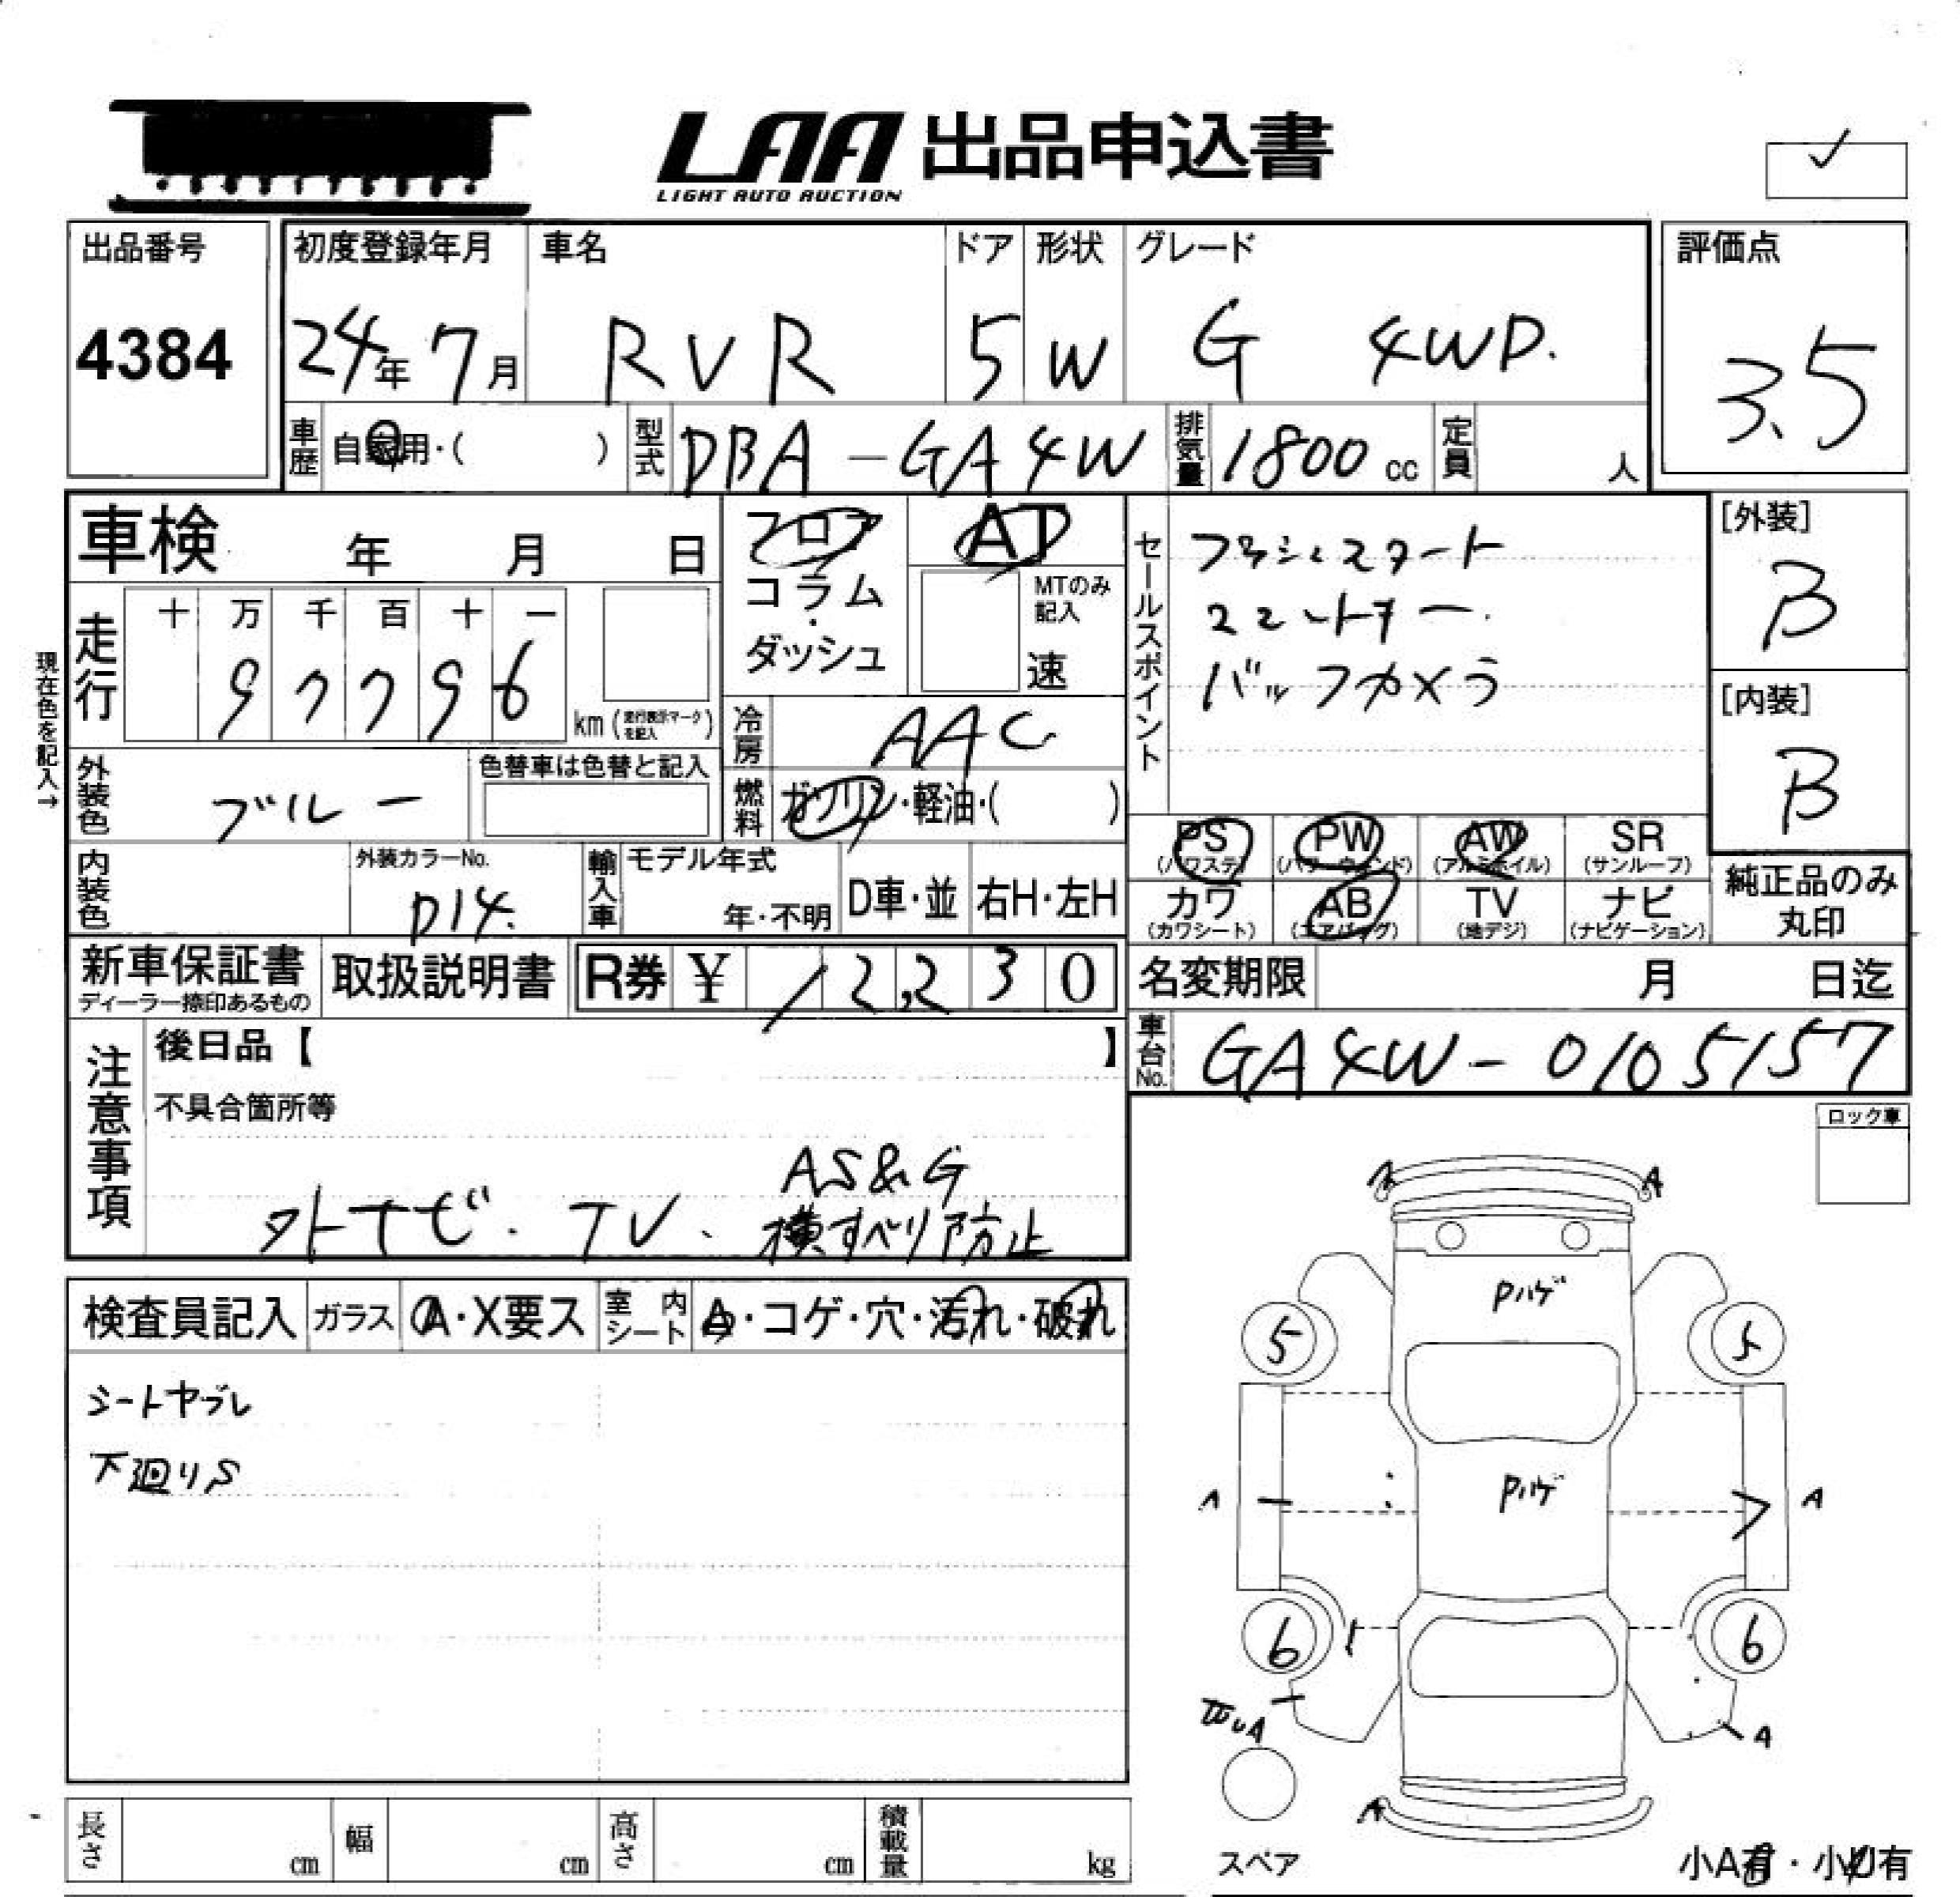 LAA 出品申込書
LIGHT AUTO AUCTION
出品番号
4384
初度登録年月 車名 ドア 形状 グレード
24年 7月 RVR 5 W G 4WD.
評価点
3.5
車歴 自家用・( ) 型式 DBA-GA4W 排気量 1800 cc 定員 人
車検 年 月 日
フロア
コラム
・
ダッシュ
AT
MTのみ
記入
速
セールスポイント
プッシュスタート
スマートキー.
バックカメラ
[外装]
B
[内装]
B
現在色を記入→
走行 十 万 千 百 十 一
97796
km (走行表示マークを記入)
冷房 AAC
燃料 ガソリン・軽油・( )
外装色 ブルー
色替車は色替と記入
内装色
外装カラーNo.
D14.
輸入車 モデル年式
年・不明 D車・並 右H・左H
PS (パワステ) PW (パワーウィンド) AW (アルミホイル) SR (サンルーフ)
カワ (カワシート) AB (エアバッグ) TV (地デジ) ナビ (ナビゲーション)
純正品のみ
丸印
新車保証書
ディーラー捺印あるもの
取扱説明書
R券 ¥ 12,230
名変期限 月 日迄
車台No. GA4W-0105157
注意事項
後日品【 】
不具合箇所等
AS&G
外ナビ. TV、横すべり防止
ロック車
検査員記入 ガラス A・X要ス 室内シート A・コゲ・穴・汚れ・破れ
シートヤブレ
下廻りS
A A
Pハゲ
5 5
Pハゲ
A A
6 6
A
A
スペア
小A有・小U有
長さ cm 幅 cm 高さ cm 積載量 kg